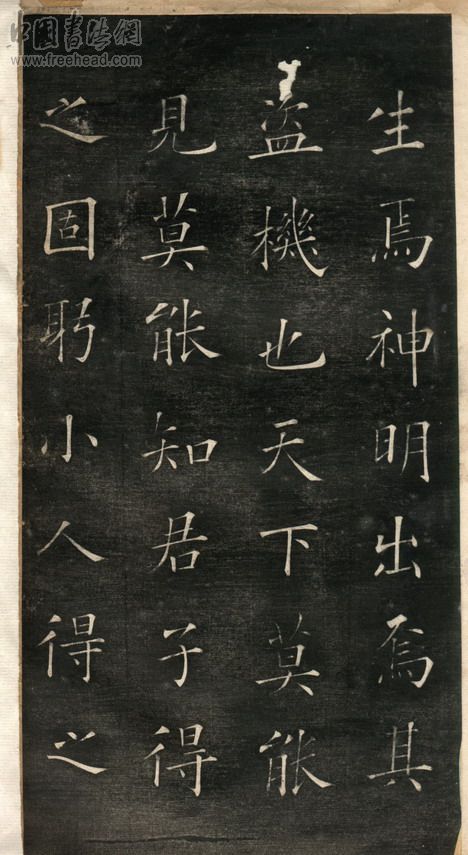 中國書法網
www.freehead.com
生焉神明出焉其
盜機也天下莫能
見莫能知君子得
之固躬小人得之